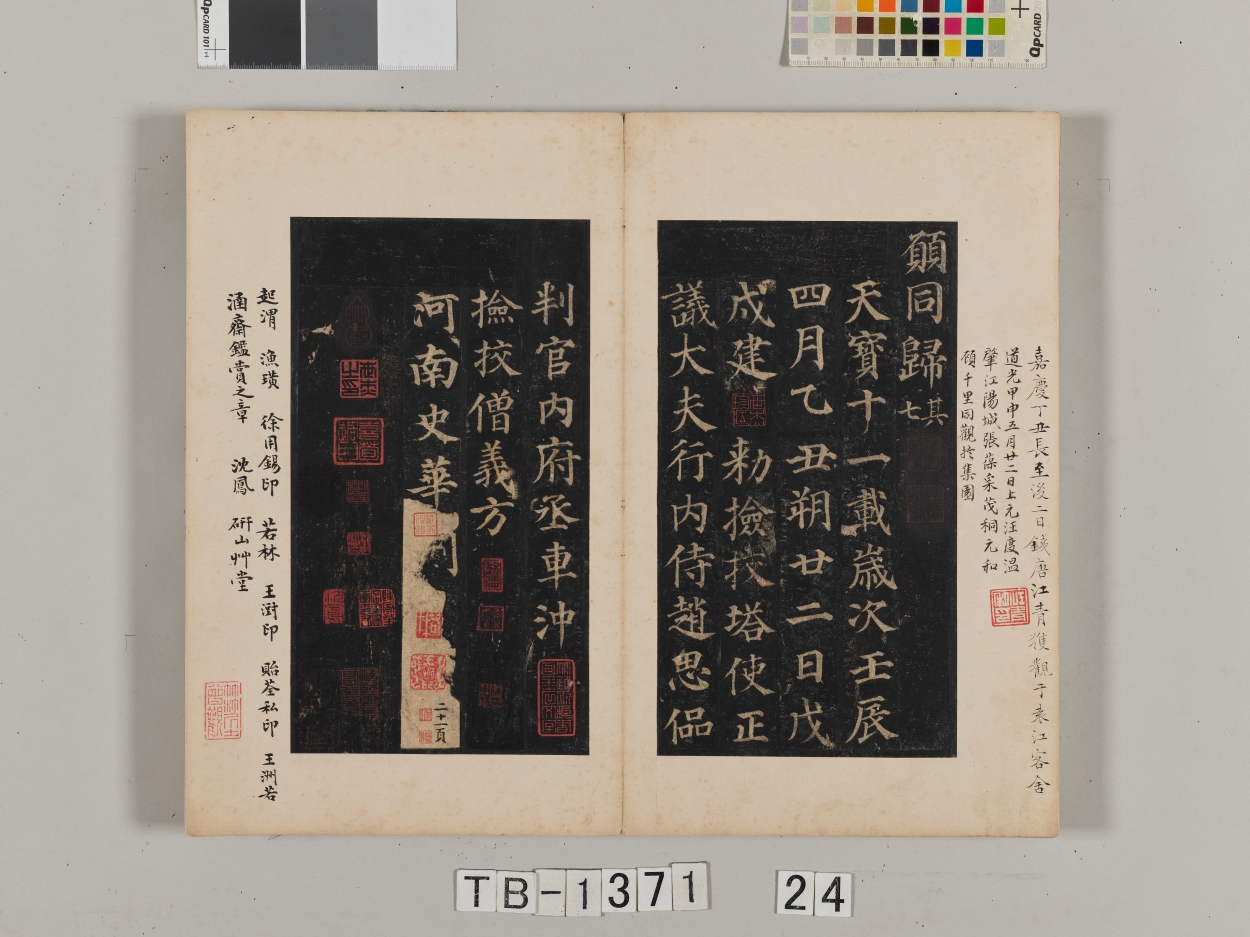 嘉慶丁丑長至後二日錢唐江青獲觀于袁江客舍
道光甲申五月廿二日上元汪度溫
肇江陽城張葆采茂桐元和
顧千里同觀於集園
願同歸 其七
天寶十一載歲次壬辰
四月乙丑朔廿二日戊
戌建 勑撿挍塔使正
議大夫行內侍趙思侃
判官內府丞車沖
撿挍僧義方
河南史華刻
二十一頁
起渭 漁璜 徐用錫印 若林 王澍印 貽荃私印 王洲若
涵齋鑑賞之章 沈鳳 研山艸堂
TB-1371 24
QpCARD 101
QpCARD